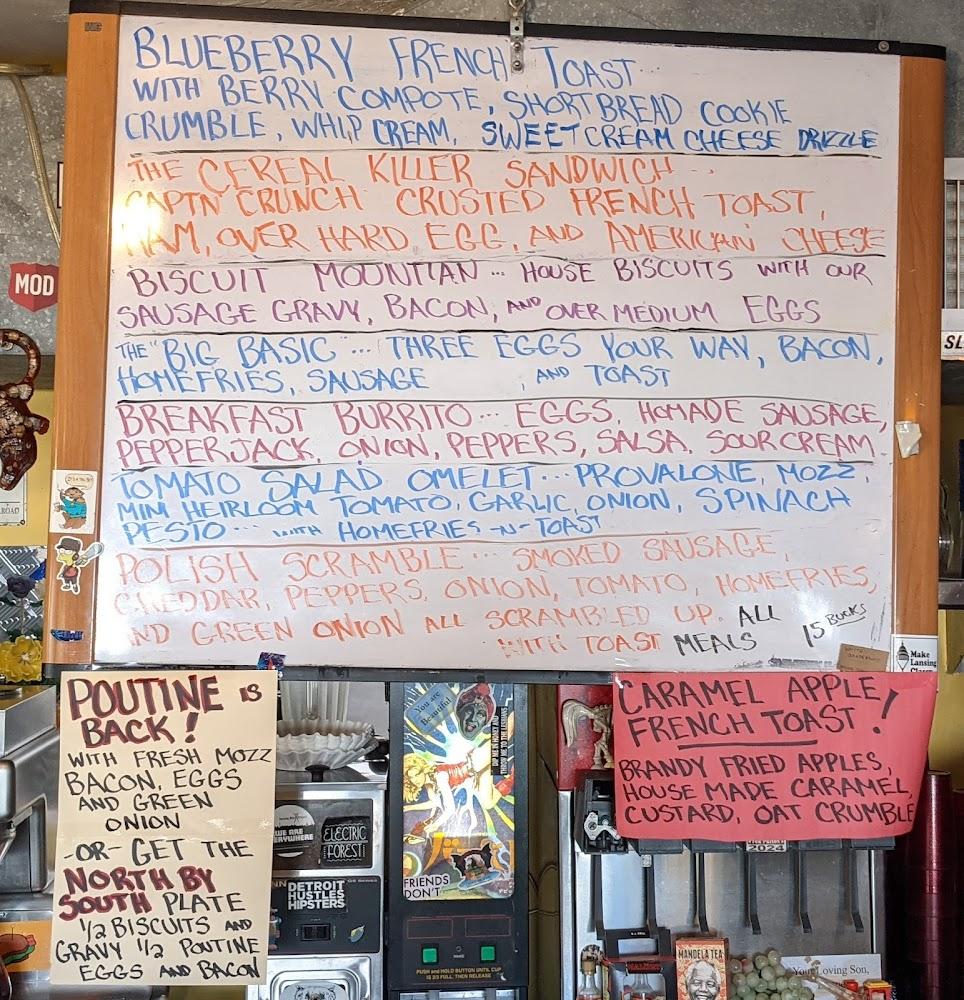 BLUEBERRY FRENCH TOAST...
WITH BERRY COMPOTE, SHORTBREAD COOKIE
CRUMBLE, WHIP CREAM, SWEET CREAM CHEESE DRIZZLE
THE CEREAL KILLER SANDWICH...
CAPTN CRUNCH CRUSTED FRENCH TOAST,
HAM, OVER HARD EGG, AND AMERICAN CHEESE
BISCUIT MOUNTIAN... HOUSE BISCUITS WITH OUR
SAUSAGE GRAVY, BACON, AND OVER MEDIUM EGGS
THE "BIG BASIC"... THREE EGGS YOUR WAY, BACON,
HOMEFRIES, SAUSAGE , AND TOAST
BREAKFAST BURRITO... EGGS, HOMADE SAUSAGE,
PEPPERJACK, ONION, PEPPERS, SALSA, SOUR CREAM,
TOMATO SALAD OMELET... PROVALONE, MOZZ,
MINI HEIRLOOM TOMATO, GARLIC, ONION, SPINACH
PESTO... WITH HOMEFRIES -N- TOAST
POLISH SCRAMBLE... SMOKED SAUSAGE,
CHEDDAR, PEPPERS, ONION, TOMATO, HOMEFRIES,
AND GREEN ONION ALL SCRAMBLED UP. ALL
WITH TOAST MEALS 15 BUCKS
MOD
SL
Make
Lansing
POUTINE IS
BACK!
WITH FRESH MOZZ
BACON, EGGS
AND GREEN
ONION
-OR- GET THE
NORTH BY
SOUTH PLATE
1/2 BISCUITS AND
GRAVY 1/2 POUTINE
EGGS AND BACON
CARAMEL APPLE
FRENCH TOAST!
BRANDY FRIED APPLES,
HOUSE MADE CARAMEL
CUSTARD, OAT CRUMBLE
You are
Beautiful
WE ARE
EVERYWHERE
ELECTRIC
FOREST
DETROIT
HUSTLES
HIPSTERS
FRIENDS
DON'T...
PUSH and HOLD BUTTON UNTIL CUP
IS 2/3 FULL, THEN RELEASE
2024
MANDELA TEA
Your Loving Son,